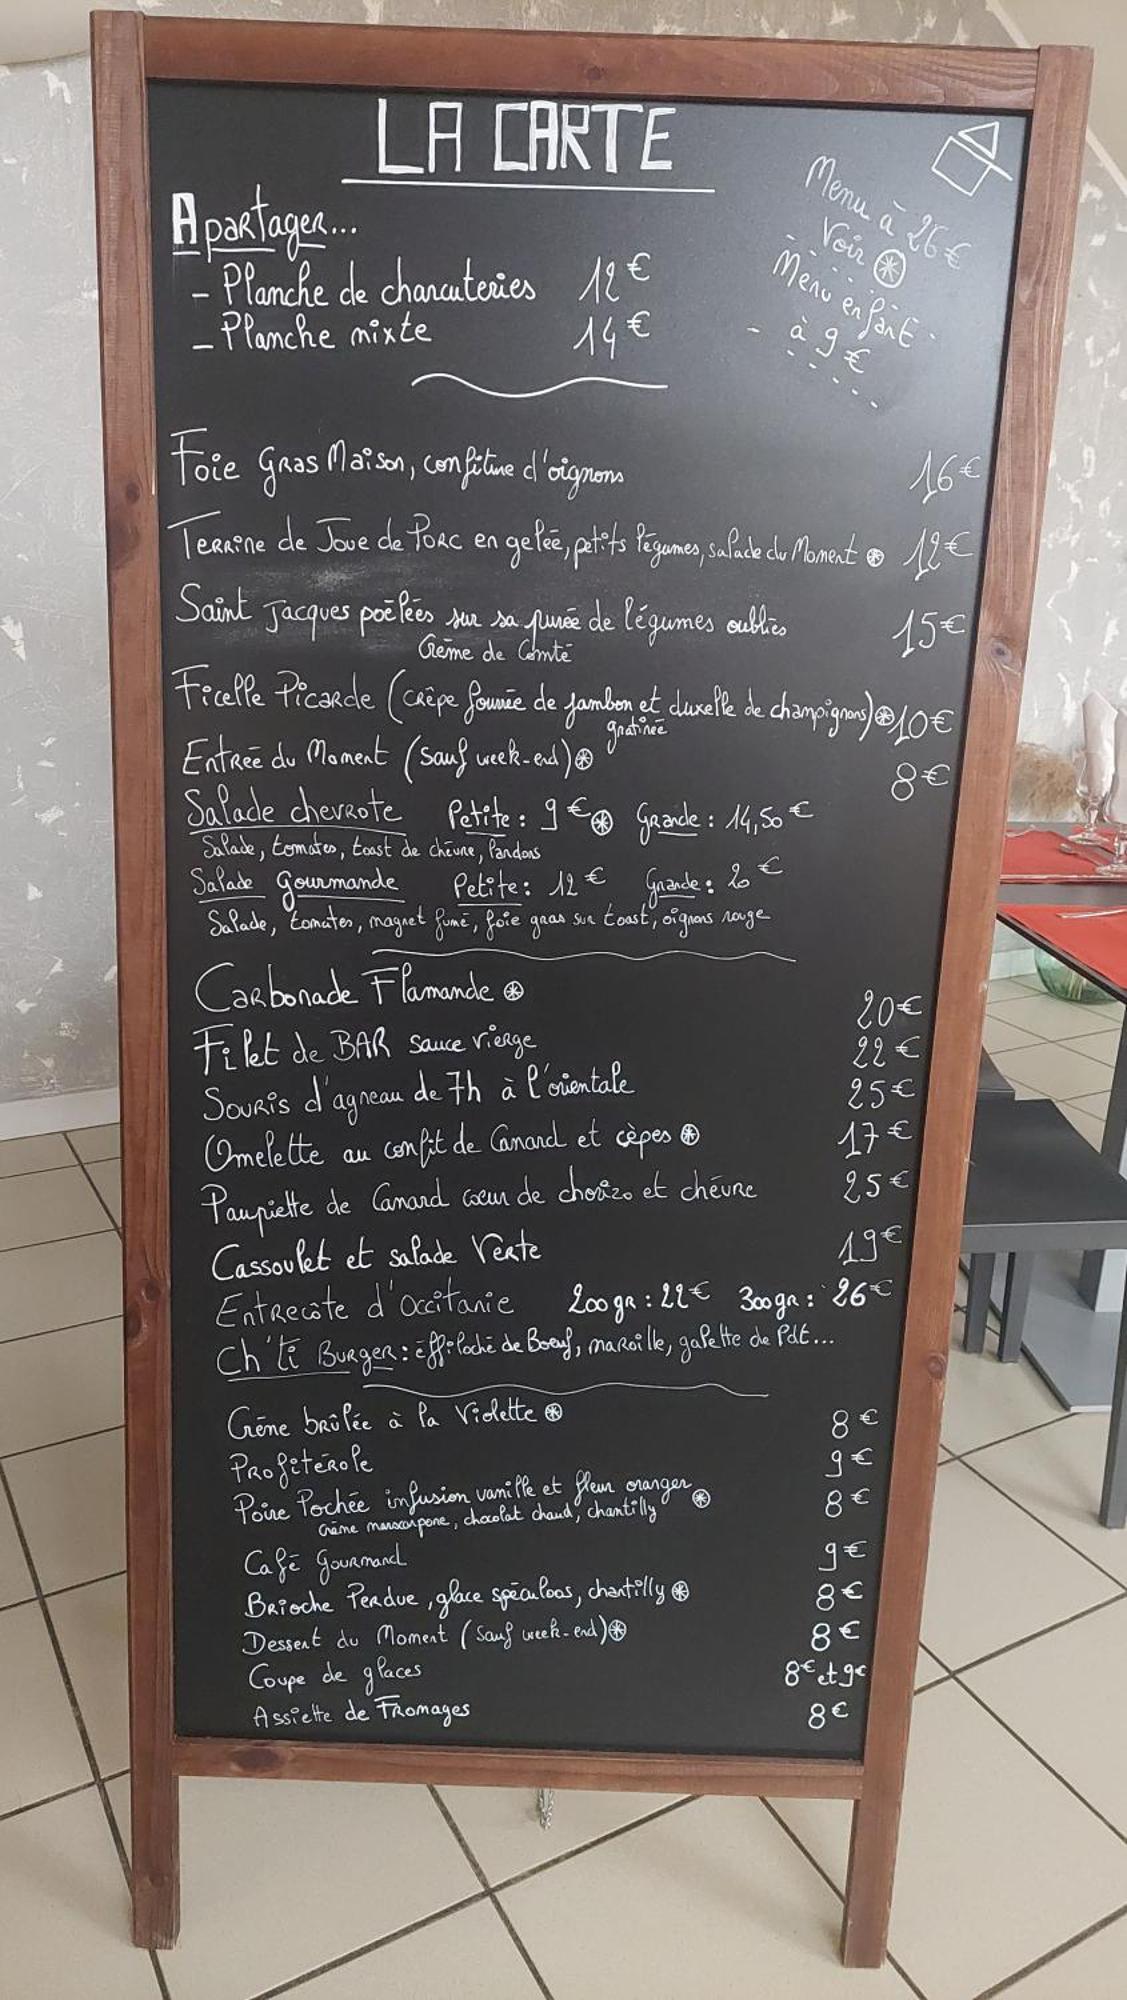 LA CARTE
Menu à 26€
Voir ⊛
Menu enfant
à 9€
A partager...
- Planche de charcuteries 12€
- Planche mixte 14€
Foie Gras Maison, confiture d'oignons 16€
Terrine de Joue de Porc en gelée, petits légumes, salade du Moment ⊛ 12€
Saint Jacques poêlées sur sa purée de légumes oubliés 15€
Crème de Comté
Ficelle Picarde (crêpe fourrée de jambon et duxelle de champignons) ⊛ 10€
gratinée
Entrée du Moment (sauf week-end) ⊛ 8€
Salade chevrote Petite : 9€ ⊛ Grande : 14,50€
Salade, tomates, toast de chèvre, lardons
Salade Gourmande Petite : 12€ Grande : 20€
Salade, tomates, magret fumé, foie gras sur toast, oignons rouge
Carbonade Flamande ⊛ 20€
Filet de BAR sauce vierge 22€
Souris d'agneau de 7h à l'orientale 25€
Omelette au confit de Canard et cèpes ⊛ 17€
Paupiette de Canard coeur de chorizo et chèvre 25€
Cassoulet et salade Verte 19€
Entrecôte d'Occitanie 200gr : 22€ 300gr : 26€
Ch'ti Burger : éffiloché de Boeuf, maroille, galette de Pdt...
Crême brûlée à la Violette ⊛ 8€
Profiterole 9€
Poire Pochée infusion vanille et fleur oranger ⊛ 8€
crème mascarpone, chocolat chaud, chantilly
Café Gourmand 9€
Brioche Perdue, glace spéculoos, chantilly ⊛ 8€
Dessert du Moment (sauf week-end) ⊛ 8€
Coupe de glaces 8€ et 9€
Assiette de Fromages 8€